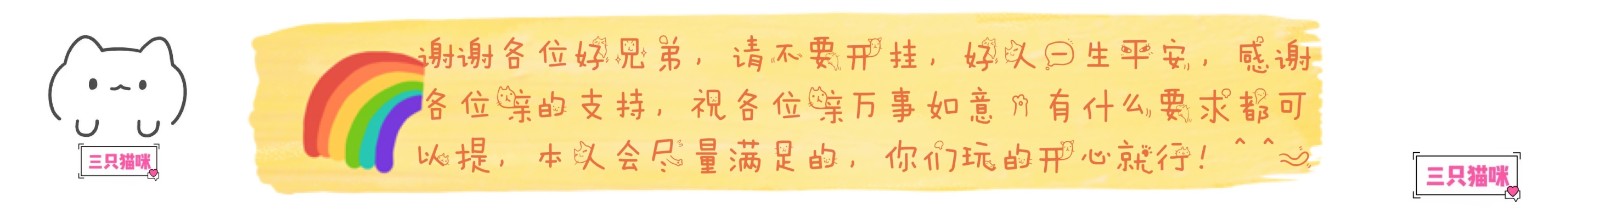 谢谢各位好兄弟，请不要开挂，好人一生平安，感谢
各位亲的支持，祝各位亲万事如意，有什么要求都可
以提，本人会尽量满足的，你们玩的开心就行！^^~
三只猫咪
三只猫咪